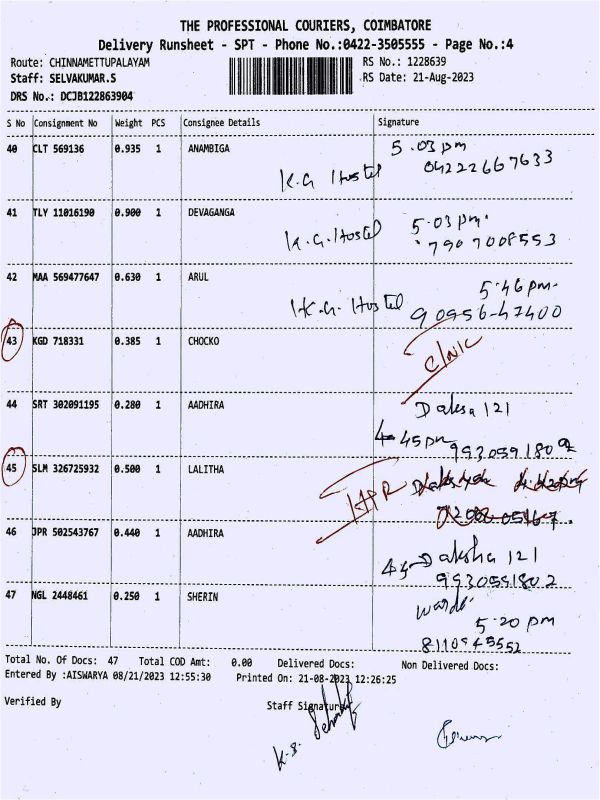 THE PROFESSIONAL COURIERS, COIMBATORE
Delivery Runsheet - SPT - Phone No.:0422-3505555 - Page No.:4
Route: CHINNAMETTUPALAYAM RS No.: 1228639
Staff: SELVAKUMAR.S RS Date: 21-Aug-2023
DRS No.: DCJB122863904
S No Consignment No Weight PCS Consignee Details Signature
40 CLT 569136 0.935 1 ANAMBIGA 5.03 pm
K.G Hostel 04222667633
41 TLY 11016190 0.900 1 DEVAGANGA 5.03 pm.
K.G. Hostel 7907008553
42 MAA 569477647 0.630 1 ARUL 5.46 pm.
K.G. Hostel 90956-47400
43 KGD 718331 0.385 1 CHOCKO Clinic
44 SRT 302091195 0.280 1 AADHIRA Daksa 121
4-45 pm
45 SLM 326725932 0.500 1 LALITHA
46 JPR 502543767 0.440 1 AADHIRA Daksha 121
9930591802
47 NGL 2448461 0.250 1 SHERIN
5.20 pm
8110945552
Total No. Of Docs: 47 Total COD Amt: 0.00 Delivered Docs: Non Delivered Docs:
Entered By :AISWARYA 08/21/2023 12:55:30 Printed On: 21-08-2023 12:26:25
Verified By Staff Signature
K.S.